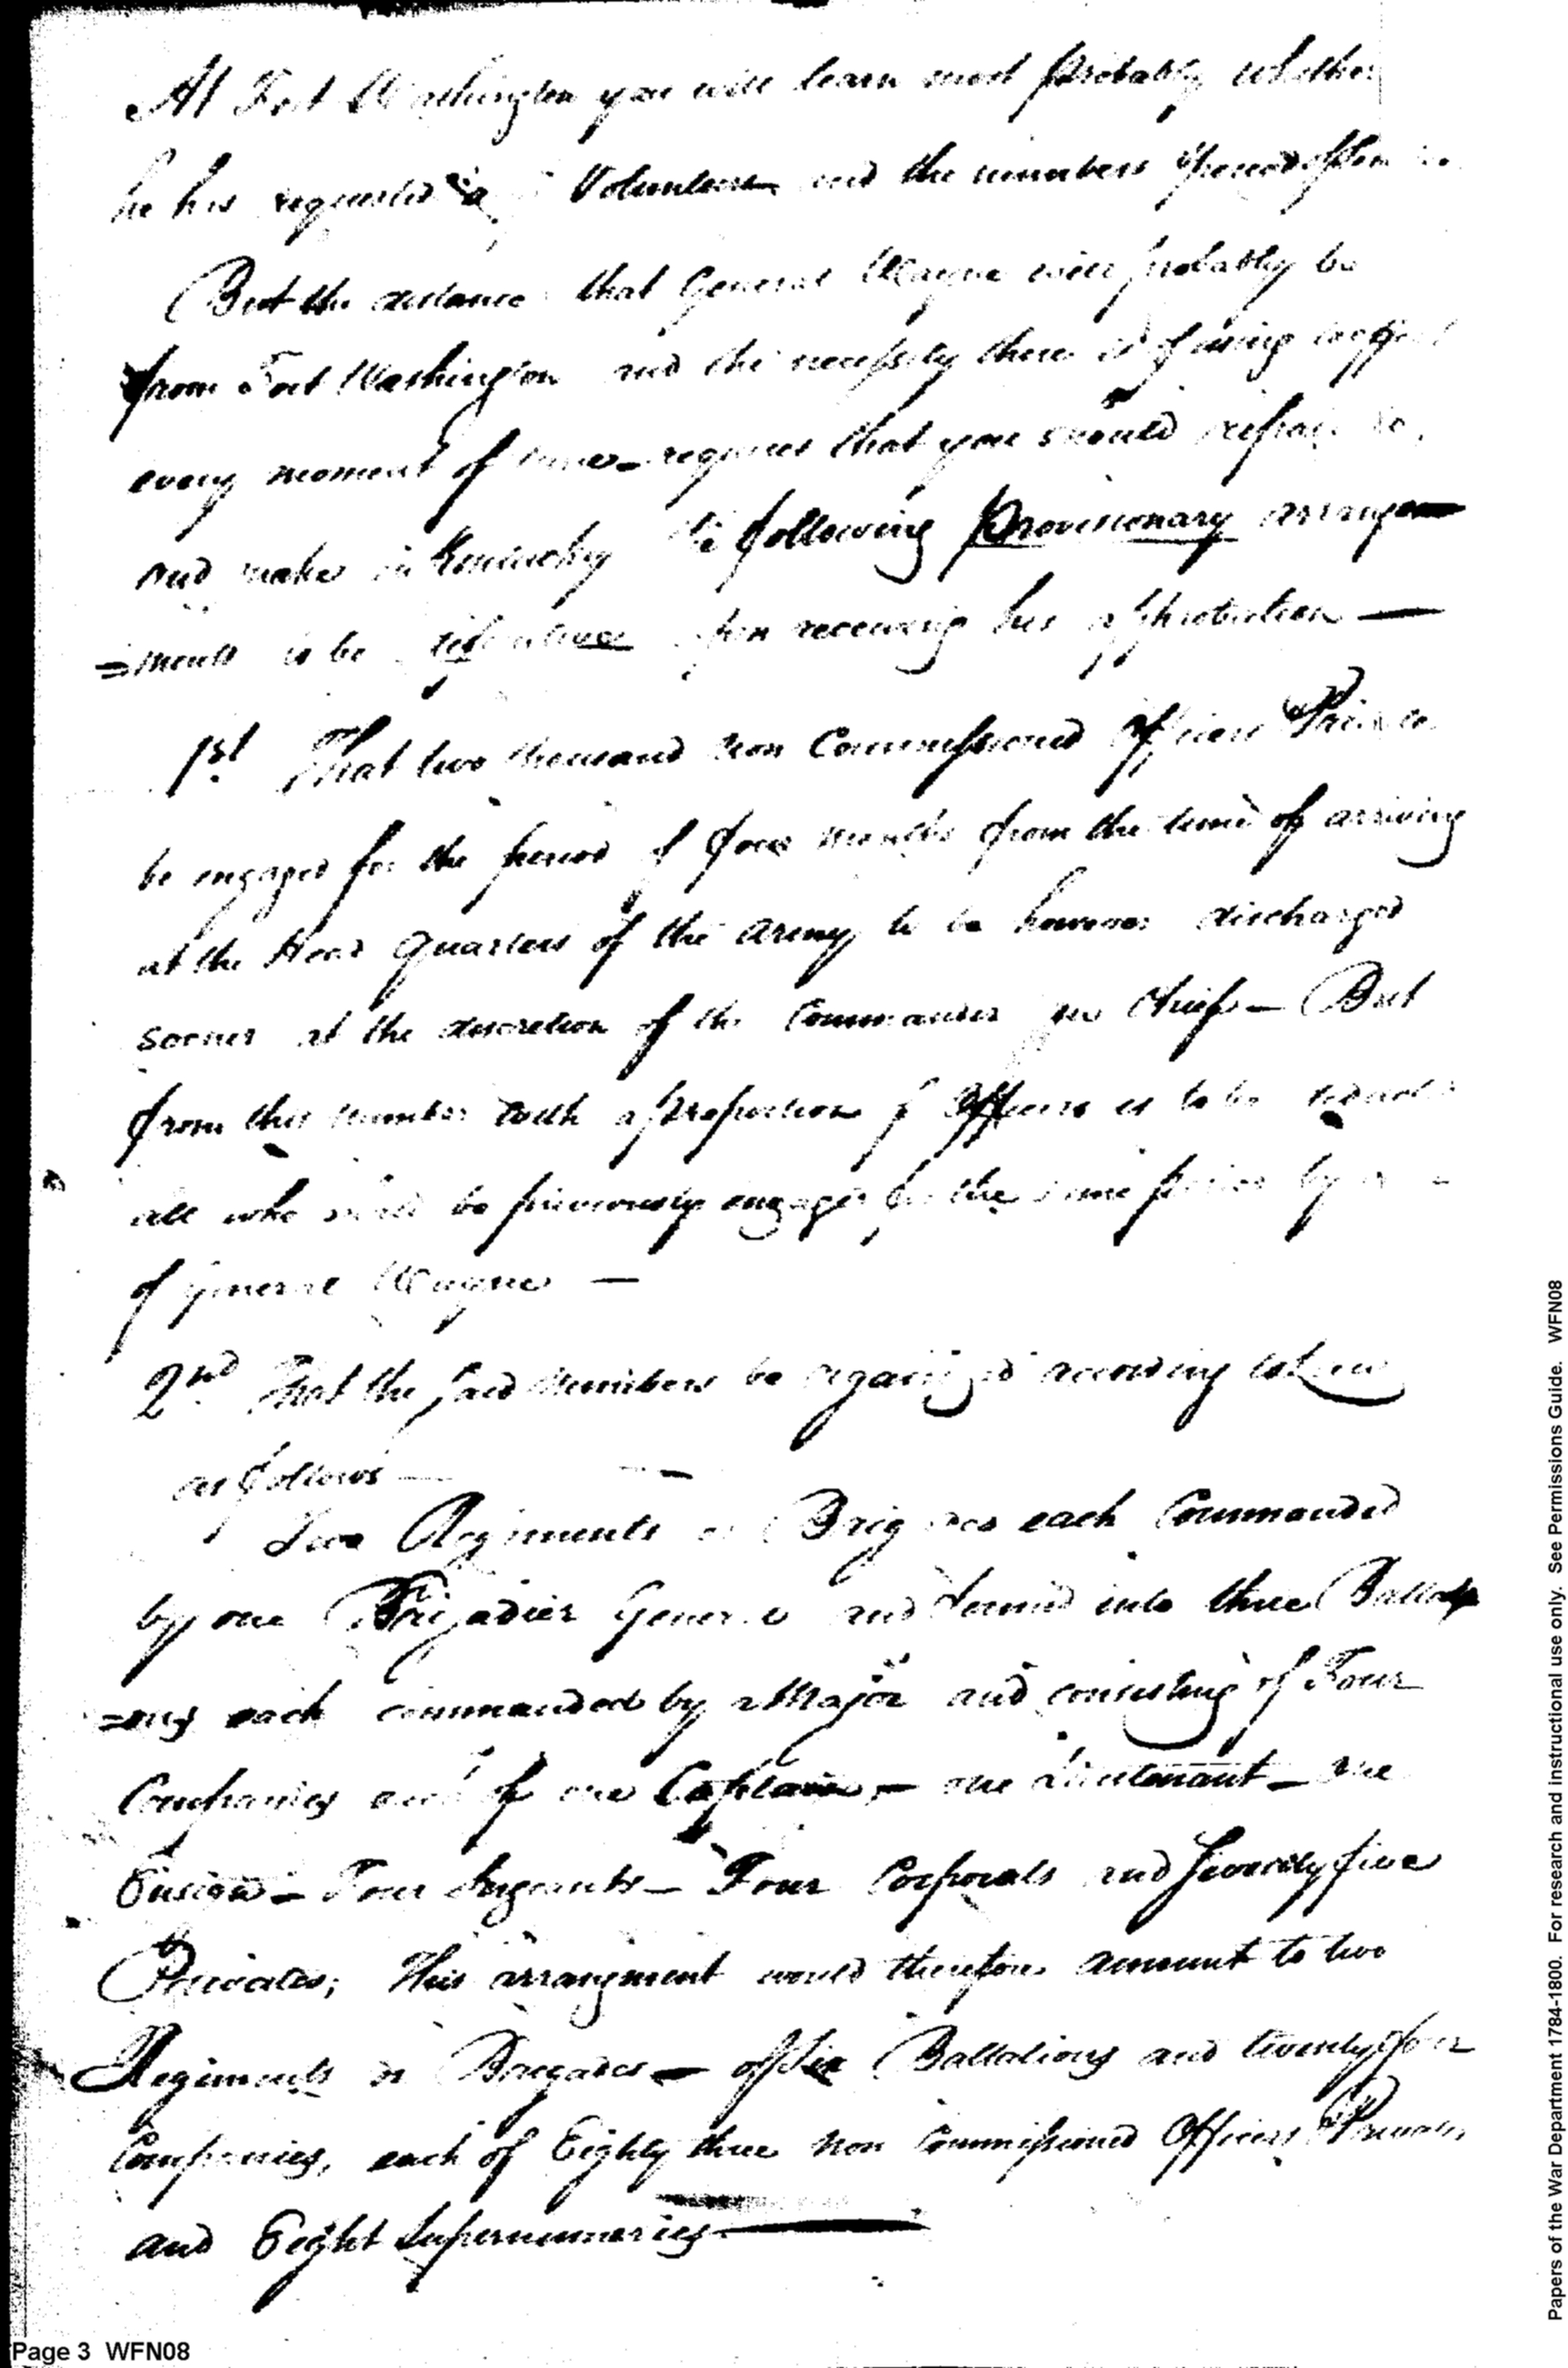 At Fort Washington you will learn most probably whether
he has requested a Volunteers and the numbers & period of
But the distance that General Wayne will probably be
from Fort Washington and the necessity there is of using
every moment of time requires that you should repair to
and make in Kentucky the following Provisionary arrange
=ments to be definitive upon receiving his approbation —
1st. That two thousand non Commissioned Officers & Privates
be engaged for the period of four months from the time of arriving
at the Head Quarters of the Army to be however discharged
sooner at the discretion of the Commander in Chief — But
from this number with a proportion of Officers is to be
all who should be previously engaged for the same period by
of General Wayne —
2nd. That the said numbers be organized according to
as follows —
Two Regiments or Brigades each Commanded
by one Brigadier General and formed into three Battali
=ons each commanded by a Major and consisting of Four
Companies each of one Captain, — one Lieutenant — one
Ensign — Four Sergeants — Four Corporals and Seventy five
Privates; This arrangment would therefore amount to two
Regiments or Brigades — of Six Battalions and twenty four
Companies, each of Eighty three non Commissioned Officers & Privates
and Eight Supernumeraries —
Page 3 WFN08
Papers of the War Department 1784-1800. For research and instructional use only. See Permissions Guide. WFN08